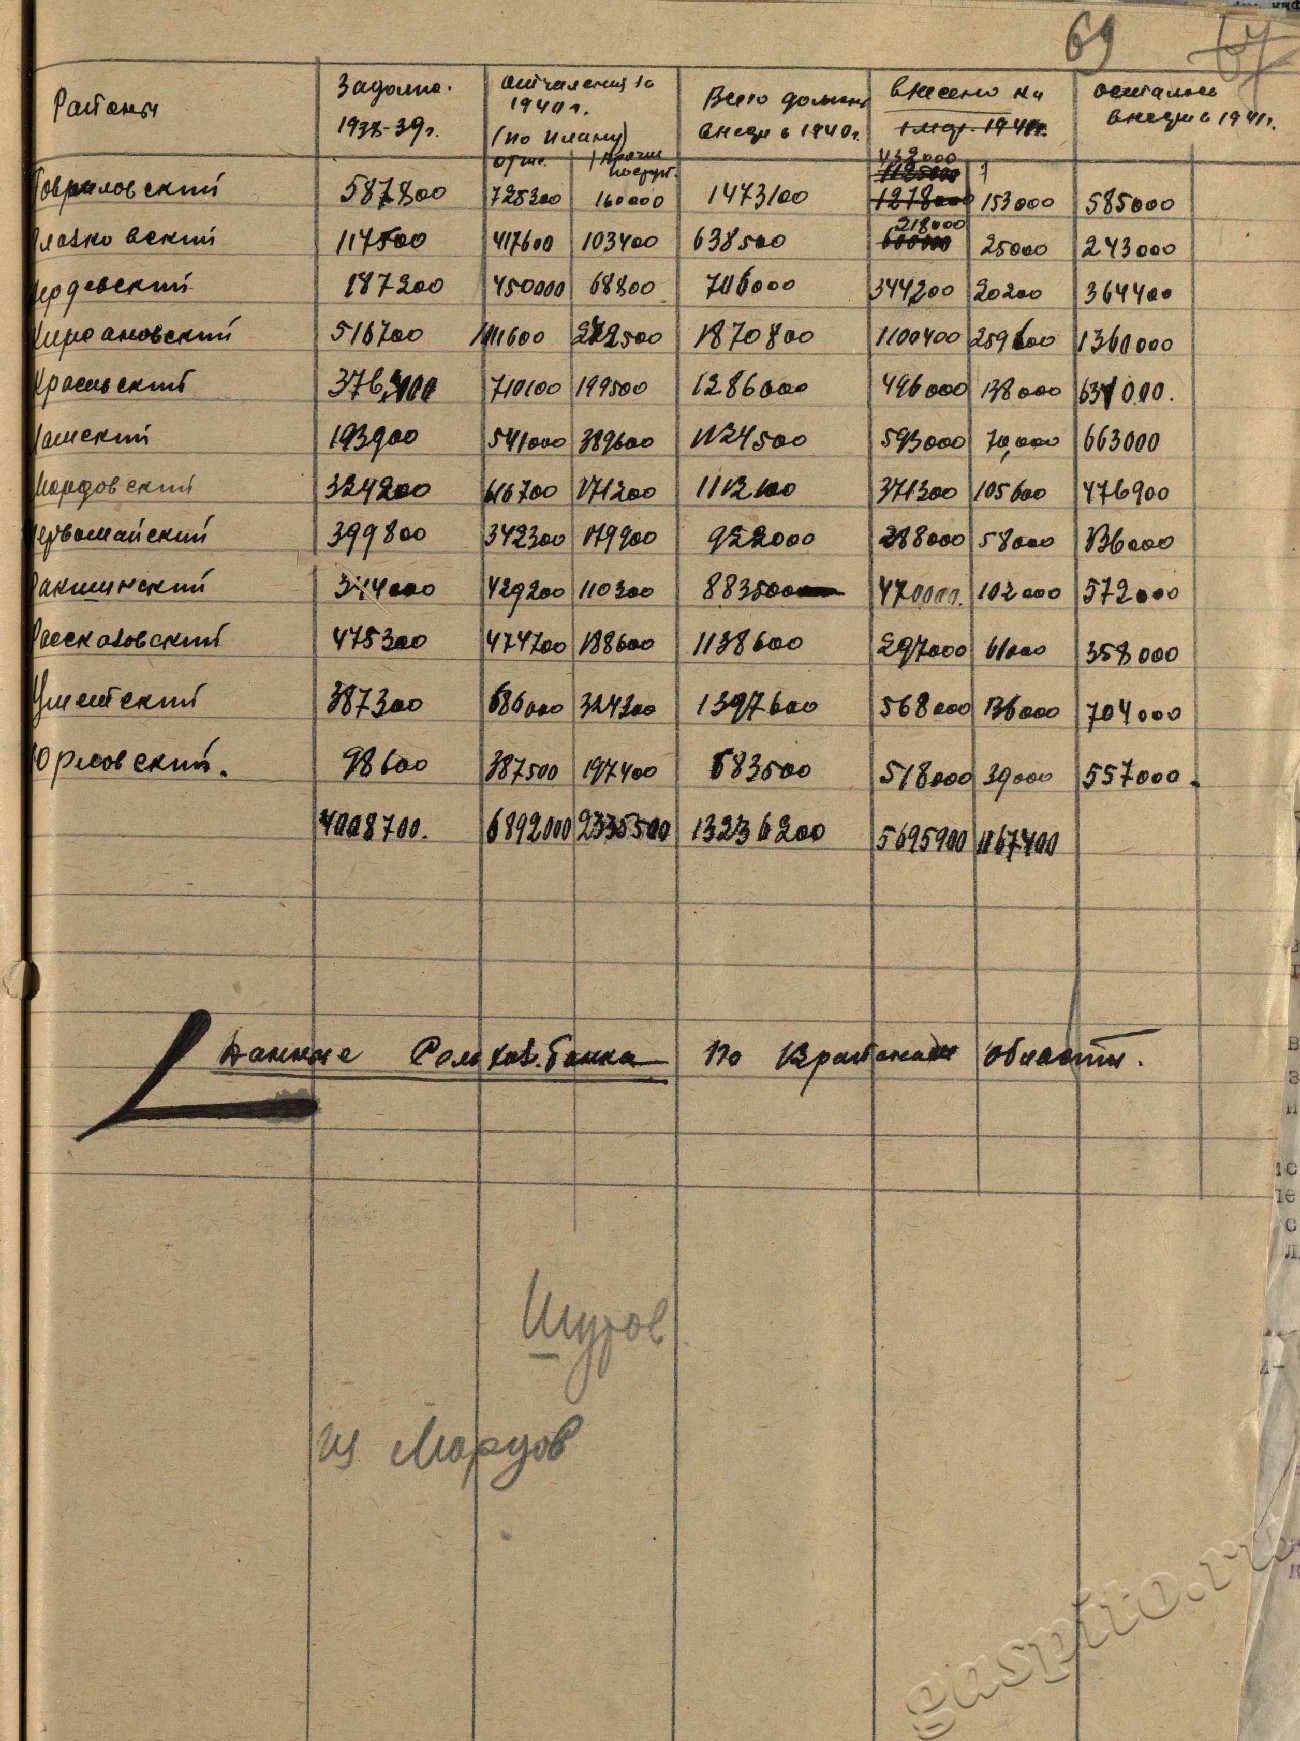 69
67
Районы
Задолж.
1938-39 г.
отчисления за
1940 г.
(по плану)
отчис.
прочие
поступ.
Всего должны
внести в 1940 г.
внесено на
1 мар. 1941 г.
осталось
внести в 1941 г.
Гавриловский 587800 728300 160000 1473100 432000 1125000 1278000 153000 585000
Глазковский 117500 417600 103400 638500 218000 600000 25000 243000
Дегтевский 187200 450000 68800 706000 344200 20200 364400
Кирсановский 516700 1111600 242500 1870800 1100400 259600 1360000
Красивский 376400 710100 199500 1286000 496000 138000 634000.
Ламский 193900 541000 389600 1124500 593000 70,000 663000
Мордовский 324200 616700 171200 1112100 371300 105600 476900
Первомайский 399800 342300 179900 922000 288000 58000 336000
Ракшинский 344000 429200 110300 883500 470000. 102000 572000
Рассказовский 475300 474700 188600 1138600 297000 61000 358000
Уметский 387300 686000 324300 1397600 568000 136000 704000
Юрловский. 98600 387500 197400 683500 518000 39000 557000.
4008700. 6892000 2335500 13236200 5695900 1167400
Данные Сельхоз. банка по 13 районам области.
Шуров
из Марцов
gaspito.ru